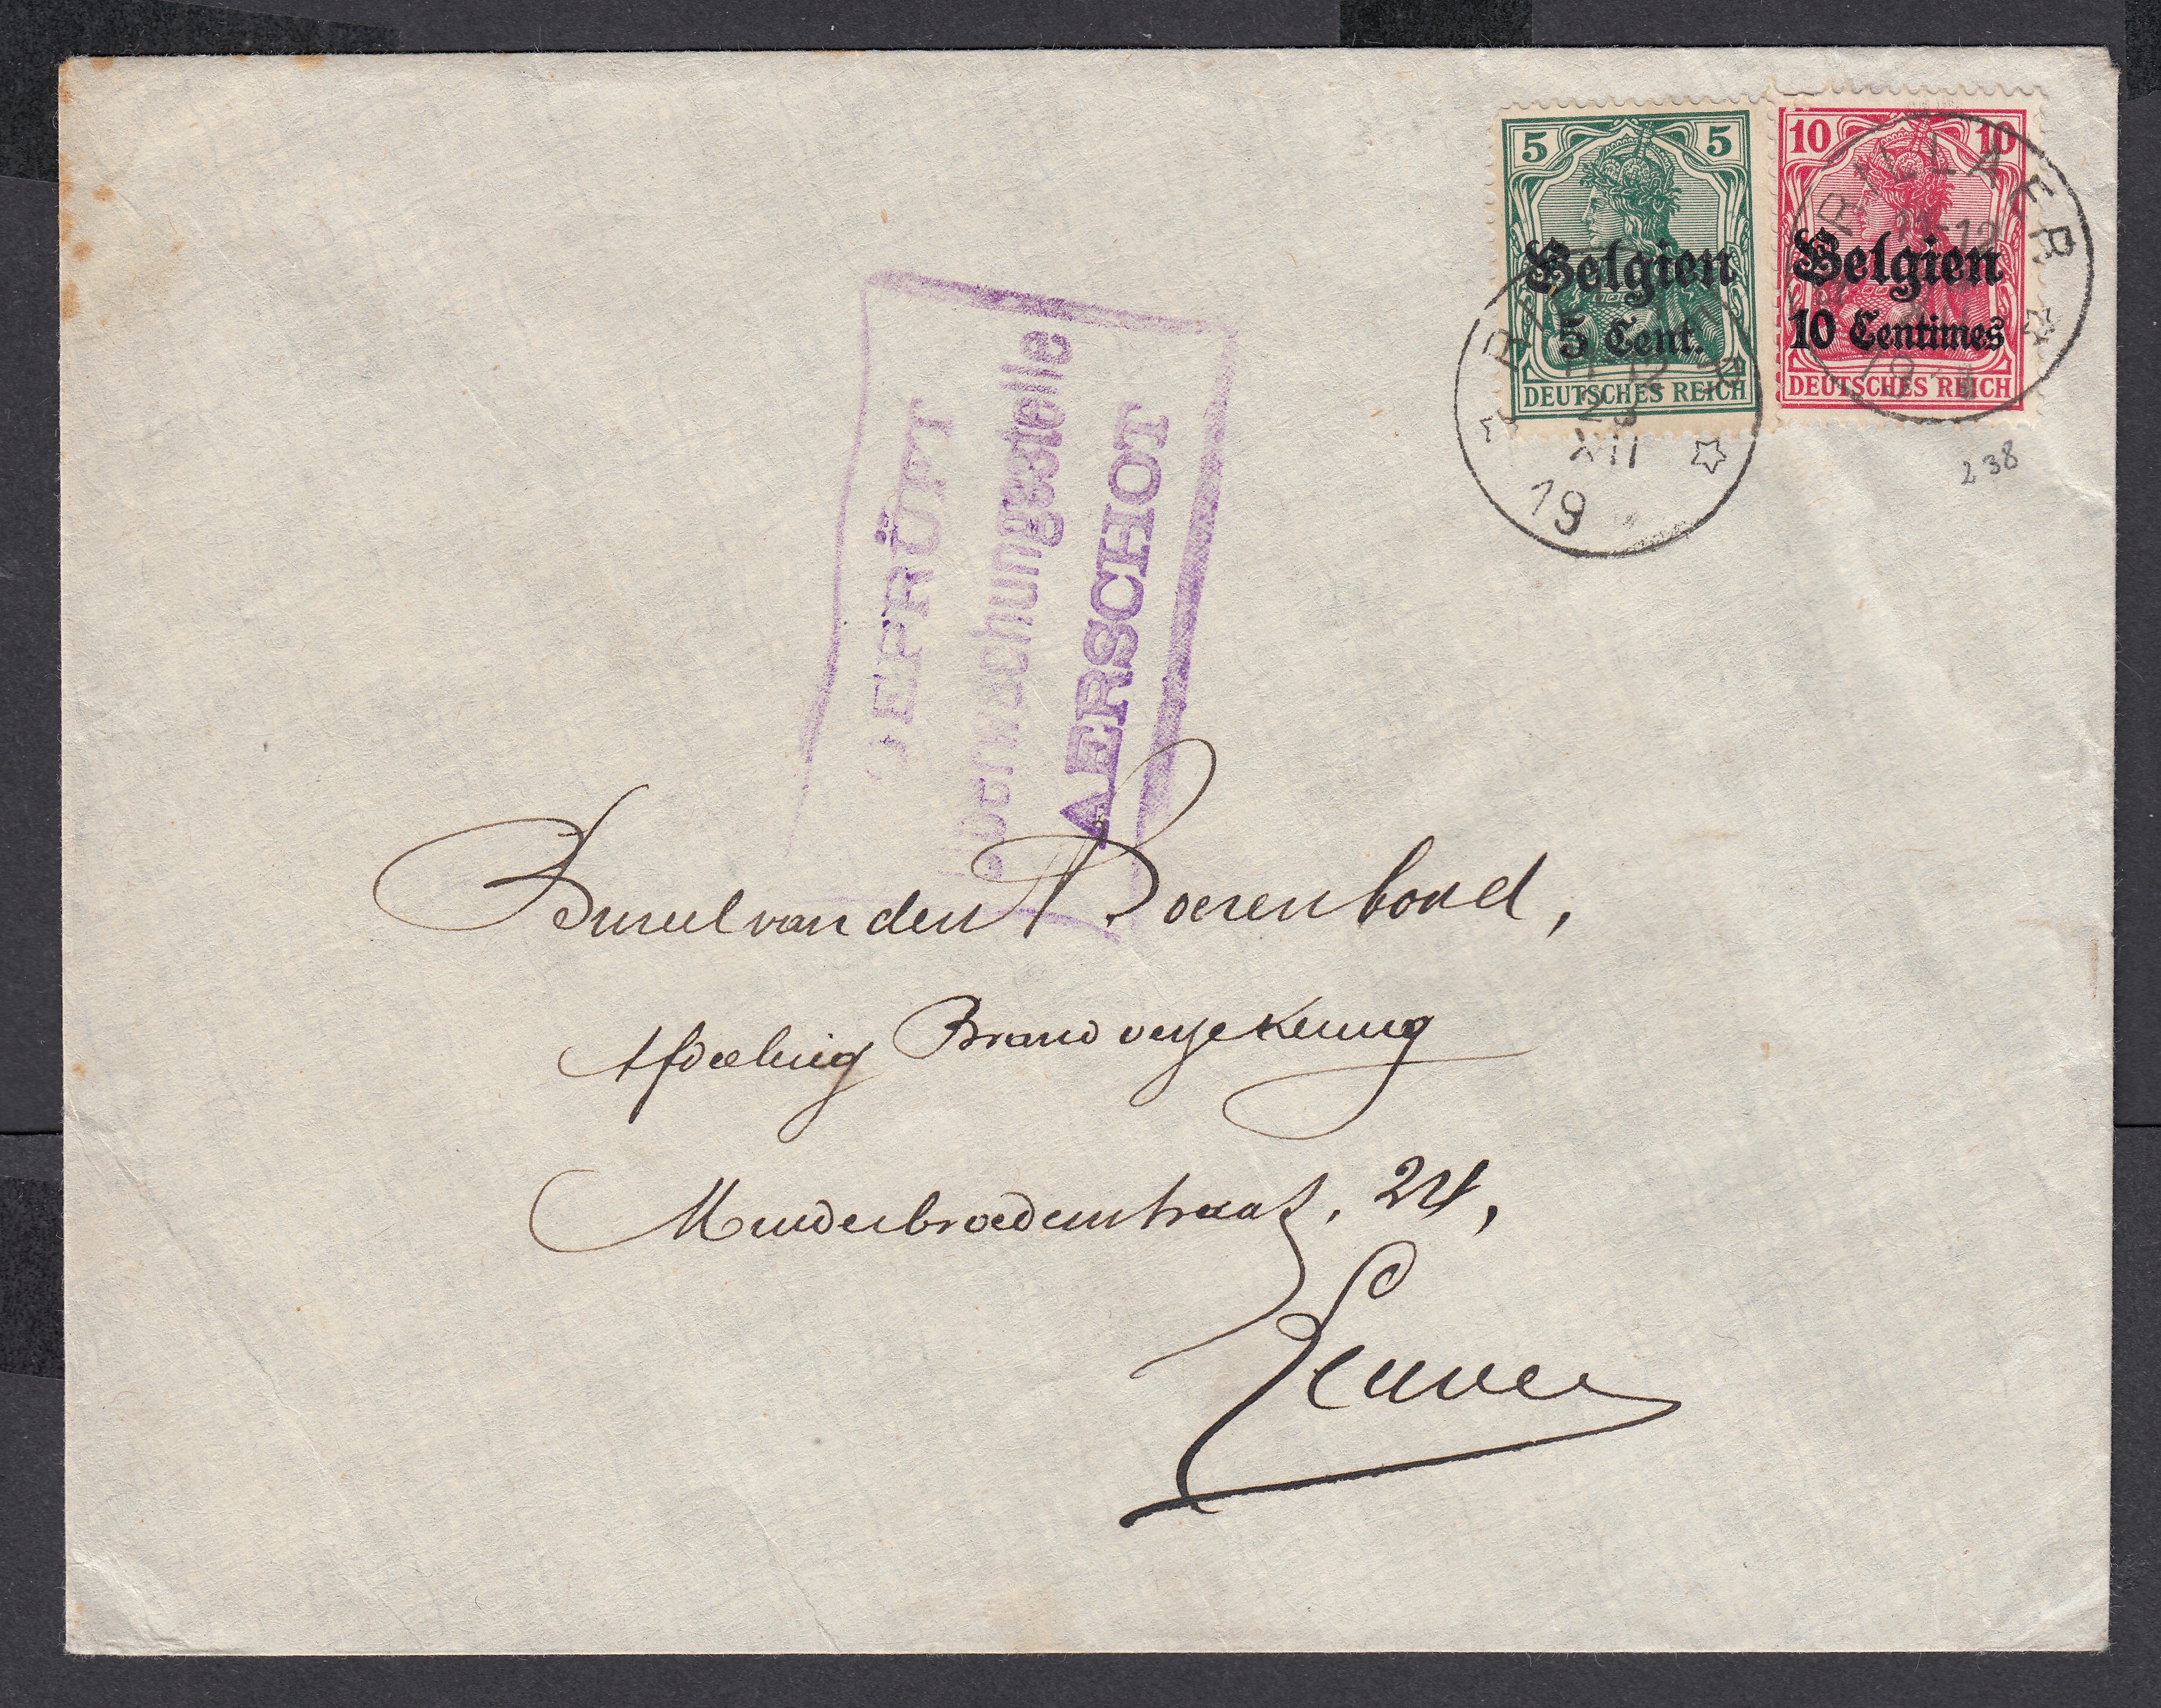 5 5
Belgien
5 Cent.
DEUTSCHES REICH
10 10
Belgien
10 Centimes
DEUTSCHES REICH
RILLAER
11-12
RILLAER
11-12
23
XII
19
238
GEPRÜFT
Überwachungsstelle
AERSCHOT
Bureel van den Boerenbond,
Afdeeling Brandverzekering
Minderbroedersstraat, 24,
Leuven